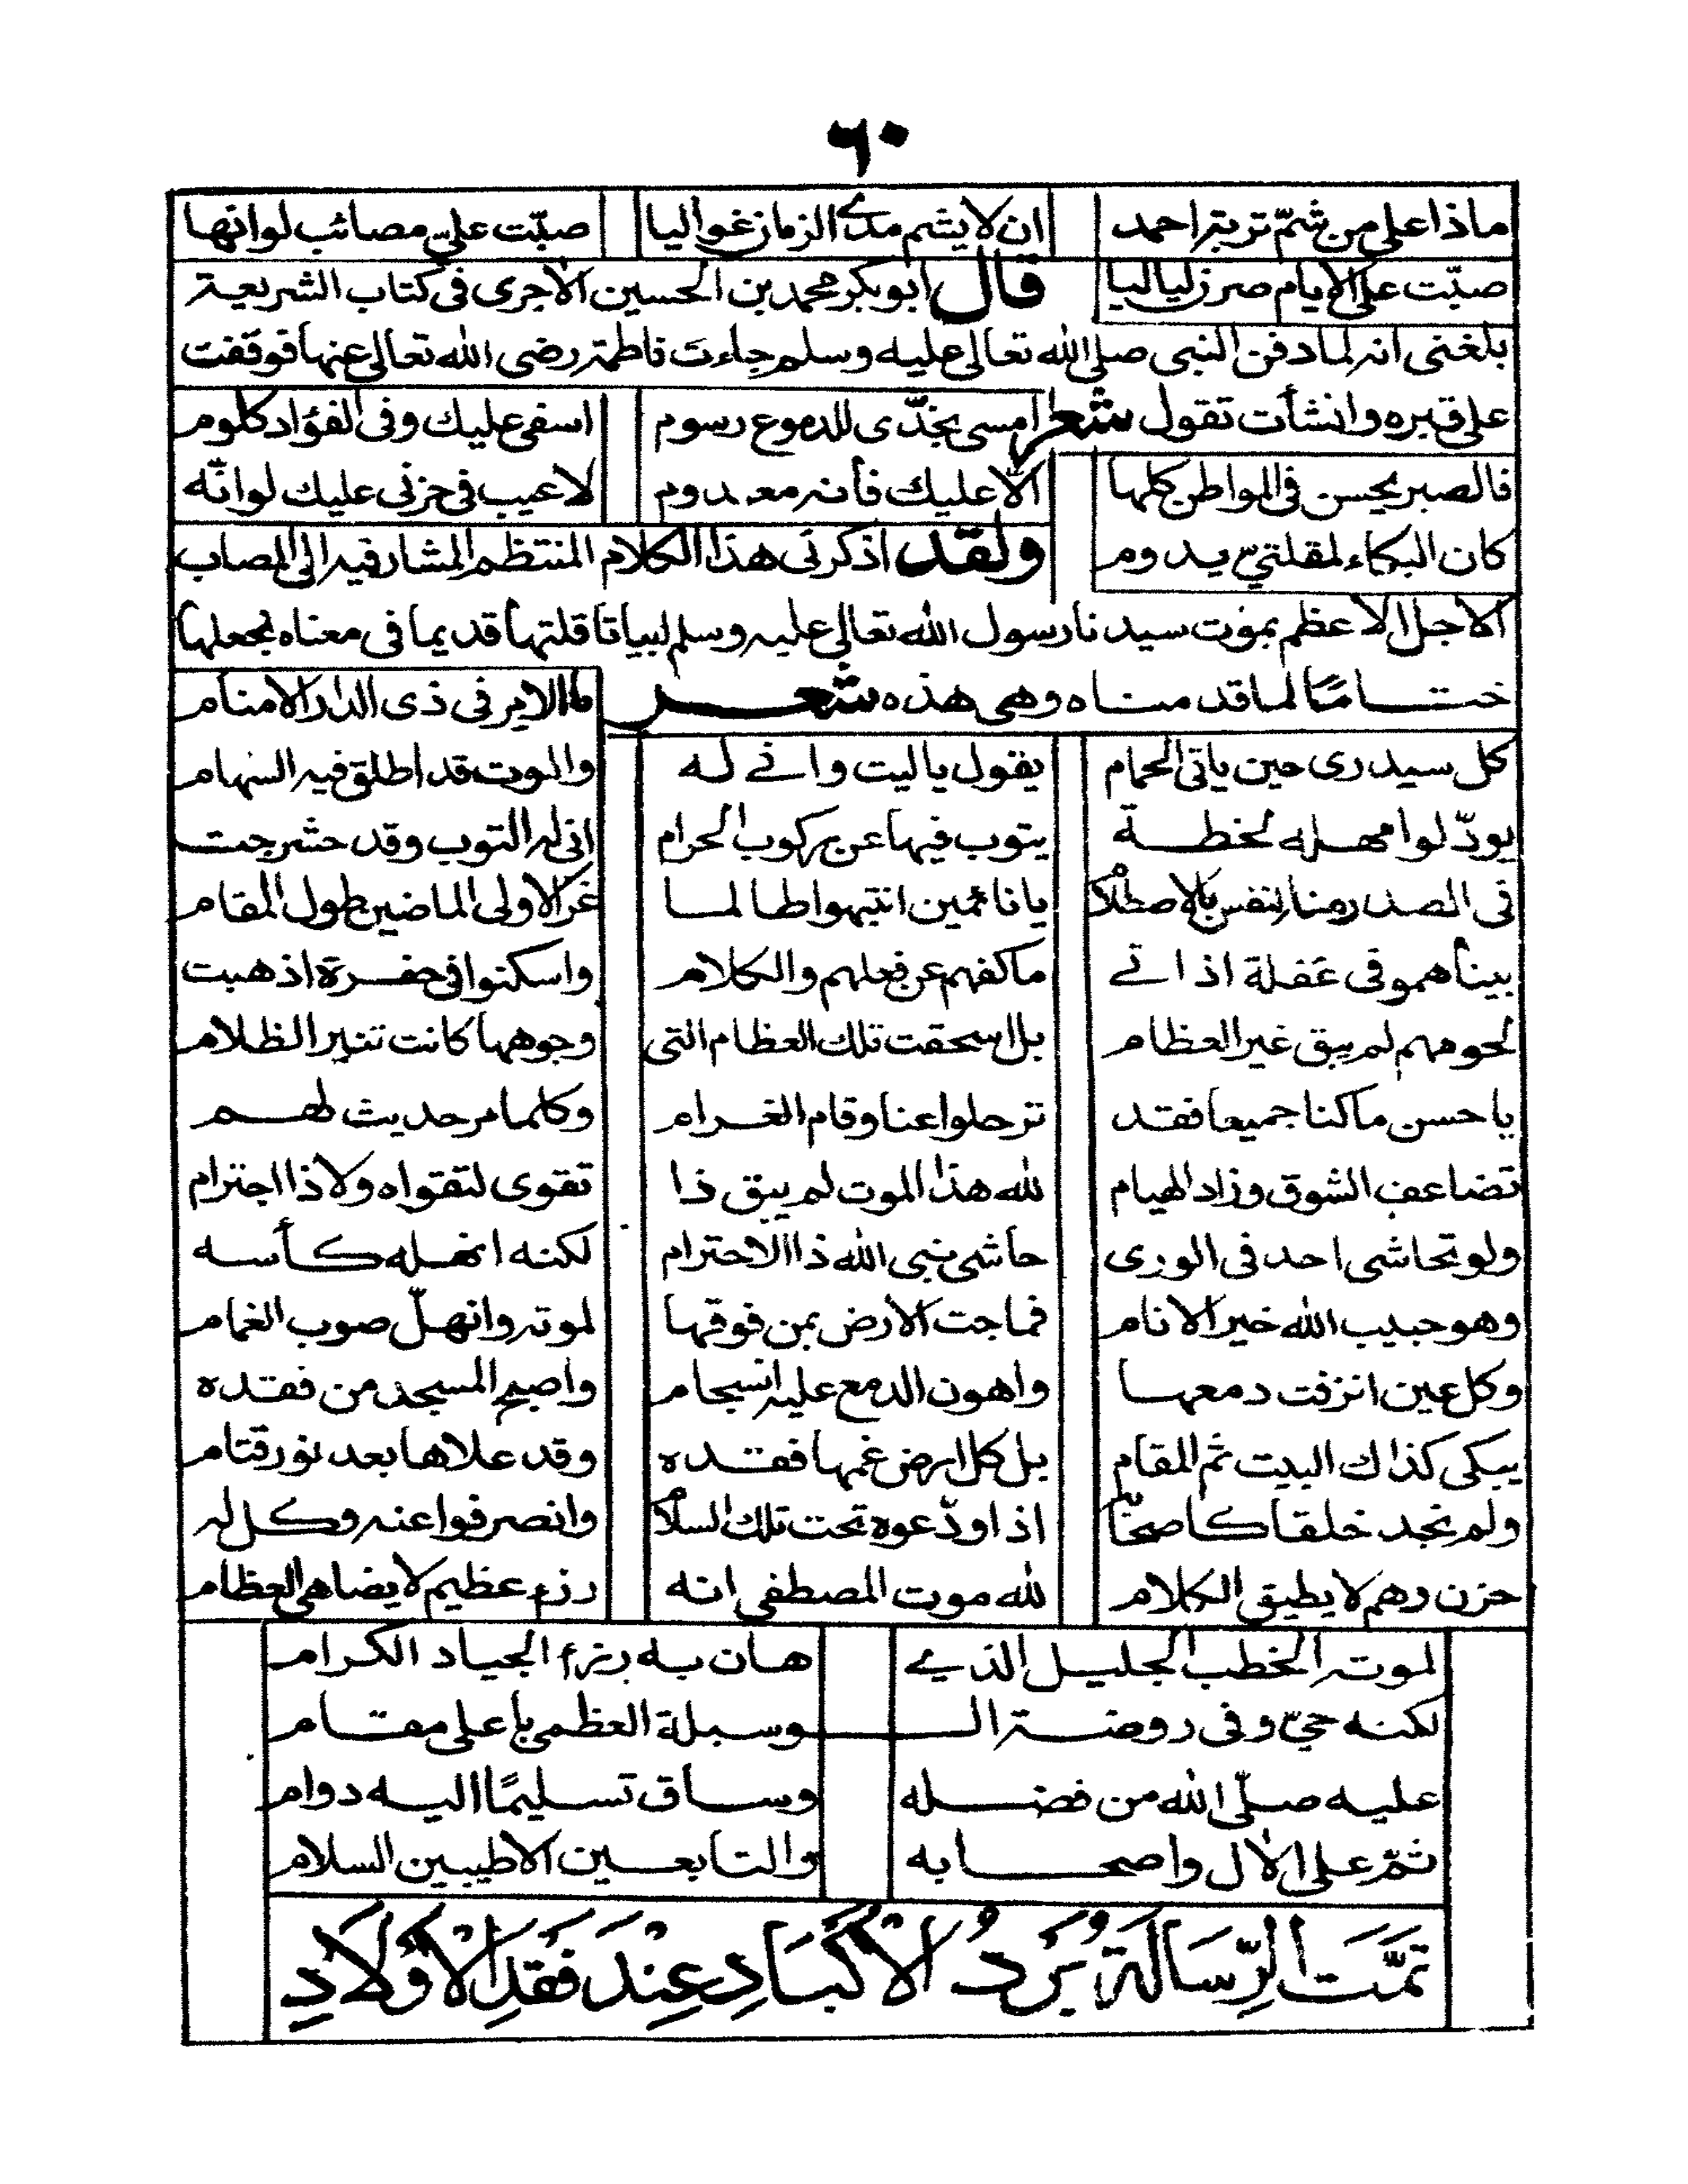 ٦٠
ماذا على من شمّ تربة احمد ان لا يشم مدى الزمان غواليا صبّت عليّ مصائب لو انها
صبّت على الايام صرن لياليا قال ابو بكر محمد بن الحسين الآجرى فى كتاب الشريعة
بلغنى انه لما دفن النبى صلى الله تعالى عليه وسلم جاءت فاطمة رضى الله تعالى عنها فوقفت
على قبره وانشأت تقول شعر امسى بخدّى للدموع رسوم اسفى عليك وفى الفؤاد كلوم
فالصبر يحسن فى المواطن كلها الّا عليك فانه معدوم لا عيب فى حزنى عليك لو انّه
كان البكاء لمقلتيّ يدوم ولقد اذكرنى هذا الكلام المنتظم المشار فيه الى المصاب
الاجل الاعظم بموت سيدنا رسول الله تعالى عليه وسلم ابياتا قلتها قديما فى معناه نجعلها
ختامًا لما قدمناه وهى هذه شعر ما الامر فى ذى الدار الا منام
كل سيدرى حين ياتى الحمام يقول ياليت وانى له والموت قد اطلق فيه السهام
يودّ لو امهله لحظة يتوب فيها عن ركوب الحرام انى له التوب وقد حشرجت
فى الصدر منا نفس بالاصطلام يا نائمين انتبهوا طالما غر الاولى الماضين طول المقام
بيناهمو فى غفلة اذ اتى ما كفهم عن فعلهم والكلام واسكنوا فى حفرة اذهبت
لحومهم لم يبق غير العظام بل اسحقت تلك العظام التى وجوهها كانت تنير الظلام
يا حسن ما كنا جميعا فقد ترحلوا عنا وقام الغرام وكلما مر حديث لهم
تضاعف الشوق وزاد الهيام لله هذا الموت لم يبق ذا تقوى لتقواه ولا ذا اجترام
ولو تحاشى احد فى الورى حاشى نبى الله ذا الاحترام لكنه انهله كأسه
وهو حبيب الله خير الانام فماجت الارض بمن فوقها لموته وانهلّ صوب الغمام
وكل عين انزفت دمعها واهون الدمع عليه انسجام واصبح المسجد من فقده
يبكى كذاك البيت ثم المقام بل كل ارض غمها فقده وقد علاها بعد نور قتام
ولم تجد خلقا كاصحابه اذ اودعوه تحت تلك السلام وانصرفوا عنه وكل له
حزن وهم لا يطيق الكلام لله موت المصطفى انه رزء عظيم لا يضاهى العظام
لموته الخطب الجليل الذى هان به رزء الجياد الكرام
لكنه حيّ وفى روضة الوسيلة العظمى باعلى مقام
عليه صلّى الله من فضله وساق تسليمًا اليه دوام
ثمّ على الآل واصحابه والتابعين الاطيبين السلام
تَمَّتِ الرِّسَالَة بَرْدُ الْاَكْبَادِ عِنْدَ فَقْدِ الْاَوْلَادِ